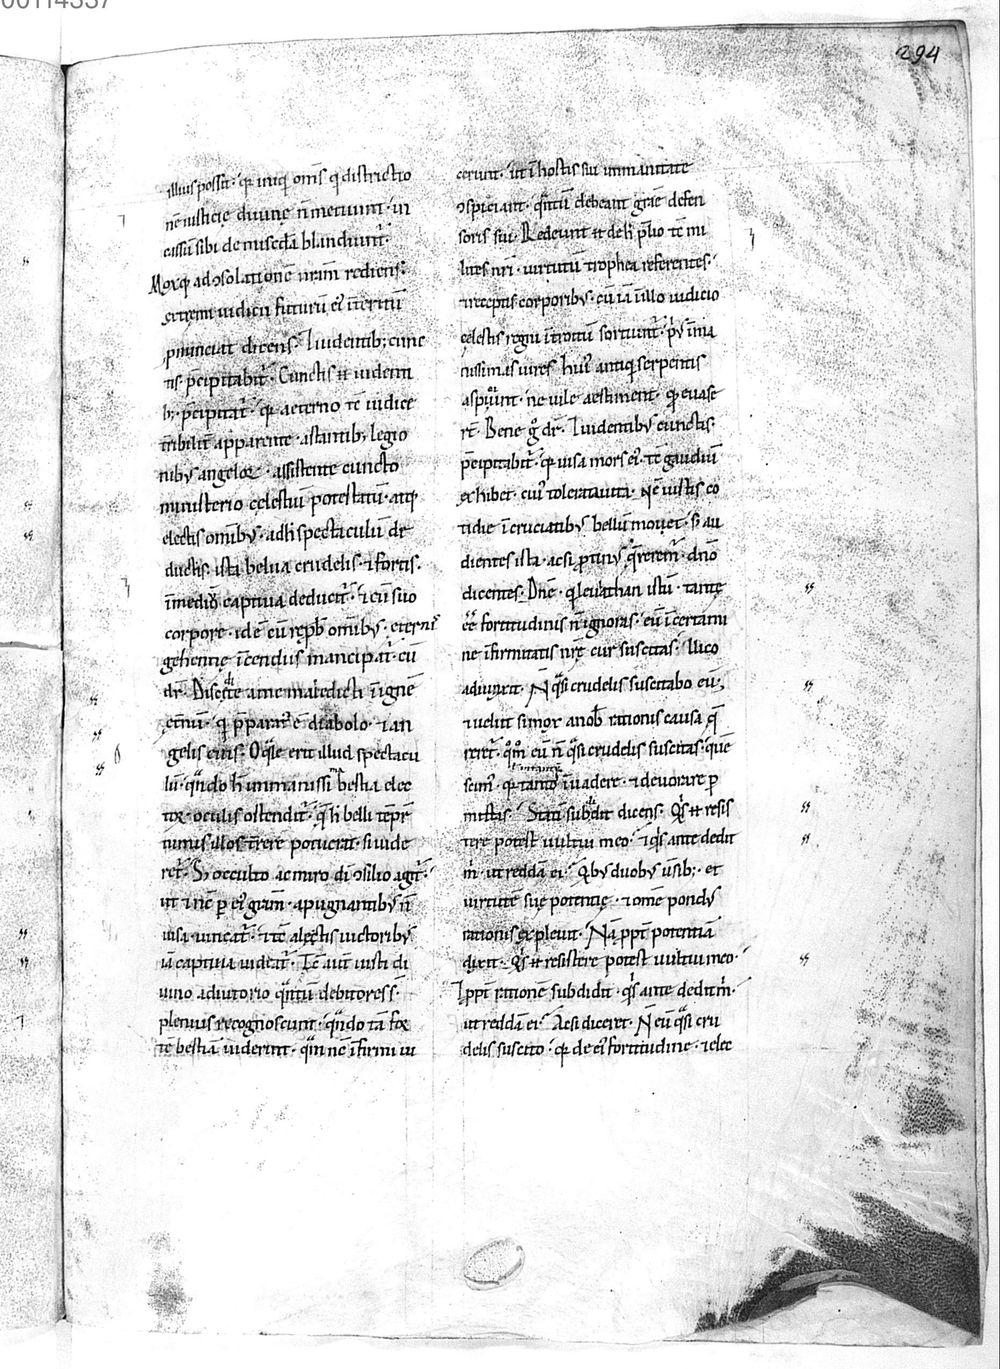 00114337
294
illius possit· qꝛ iniq̇ om̄s q̇ districtio
nē iusticię diuinę n̄ metuunt· in
cassū sibi de mis̄c̄da blandiunt᷑·
Moxq̨ ad ↄsolationē nr̄am rediens·
extremi iudicii futurū eiꝰ īteritū
p̄nunciat dicens· ⁊ uidentib; cunc
tis p̄cipitabit᷑· Cunctis ⁊ uidenti
b; p̄cipitat᷑· qꝛ aeterno tē iudice
t̄ribilit᷑ apparente· astantib; legio
nibꝰ angeloꝝ· assistente cuncto
ministerio cęlestiū potestatū· atq̨
electis om̄ibꝰ· ad h̄ spectaculū de
ductis· ista belua crudelis· ⁊ fortis·
īmediū captiua deducit᷑· ⁊ cū suo
corpore· id ē cū rep̄b om̄ibꝰ· ęternis
gehennę īcendiis mancipat᷑· cū
dr̄· Discedite a me maledicti ī ignē
et̄nū· q̇ p̄parat᷑ ē diabolo· ⁊ an
gelis eius· O q̄le erit illud spectacu
lū· q̄ndo h̄ immanissima bestia elec
toꝝ· oculis ostendit᷑· q̨ h̄ belli tēpr̄
nimis illos t̄rere potuerat· si uide
ret᷑· S; occulto ac miro dī ↄsilio agit᷑·
ut ⁊ nc̄ p eiꝰ gr̄am· a pugnantibꝰ n̄
uisa uincat᷑· ⁊ tc̄ a lętis uictoribꝰ
iā captiua uideat᷑· Tc̄ aut̄ iusti di
uino adiutorio q̄ntū debitores s̄·
plenius recognoscunt· q̄ndo tā for
tē bestiā uiderint· q̄m nc̄ īfirmi ui
cerunt· ut ī hostis sui immanitate
ↄspiciant· q̄ntū debeant grāę defen
soris sui· Redeunt ⁊ de h̄ p̄lio tc̄ mi
lites nr̄i· uirtutū trophea referentes·
⁊ receptis corporibꝰ· cū iā ī illo iudicio
cęlestis regni ītroitū sortiunt᷑· pͥꝰ īma
nissimas uires huiꝰ antiq̇ serpentis
aspiciunt· ne uile aestiment· q̇ euase
rt̄· Bene g̊ dr̄· ⁊ uidentibꝰ cunctis·
p̄cipitabit᷑· qꝛ uisa mors eiꝰ· tc̄ gaudiū
exhibet· cuiꝰ tolerata uita· nc̄ iustis co
tidie ī cruciatibꝰ bellū mouet· S; au
dientes ista· acsi ꝓtinꝰ q̄rerem᷑· dn̄o
dicentes· Dn̄e· q̇ leuiathan istū· tantę
ēē fortitudinis n̄ ignoras· cū ī certami
ne īfirmitatis nr̄ę cur suscitas· Ilico
adiunxit· N q̄si crudelis suscitabo eū·
⁊ uelut si mox a nob̄ rationis causa q̄
reret᷑· q̊m̄ eū n̄ q̄si crudelis suscitas· quē
scim̄· qꝛ tantos īuadere· ⁊ deuorare p
mittis· Statī subdidit dicens· Qͥs ⁊ resis
tere potest uultui meo· ⁊ qͥs ante dedit
m̄· ut reddā ei· Qͥbꝰ duobꝰ ūsib;· et
uirtutē suę potentię· ⁊ om̄e pondꝰ
rationis expleuit· Nā ppt̄ potentiā
dixit· Qͥs ⁊ resistere potest uultui meo·
⁊ ppt̄ rationē subdidit· qͥs ante dedit m̄·
ut reddā ei· Acsi diceret· N eū q̄si cru
delis suscito· qꝛ de eiꝰ fortitudine· ⁊ elec